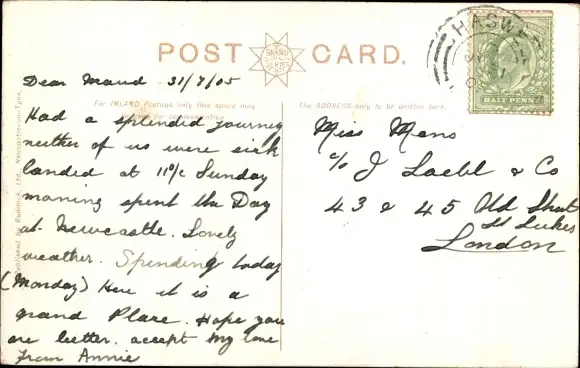 POST CARD.
HASWE
HALF PENNY
For INLAND Postage only this space may
The ADDRESS only to be written here.
Dear Maud 31/7/05
Had a splendid journey
neither of us were sick
landed at 11 o/c Sunday
morning spent the Day
at Newcastle. Lovely
weather. Spending today
(Monday) here it is a
grand Place. Hope you
are better. accept my love
From Annie
Miss Mans
c/o J Laebl & Co
43 & 45 Old Street
St Lukes
London